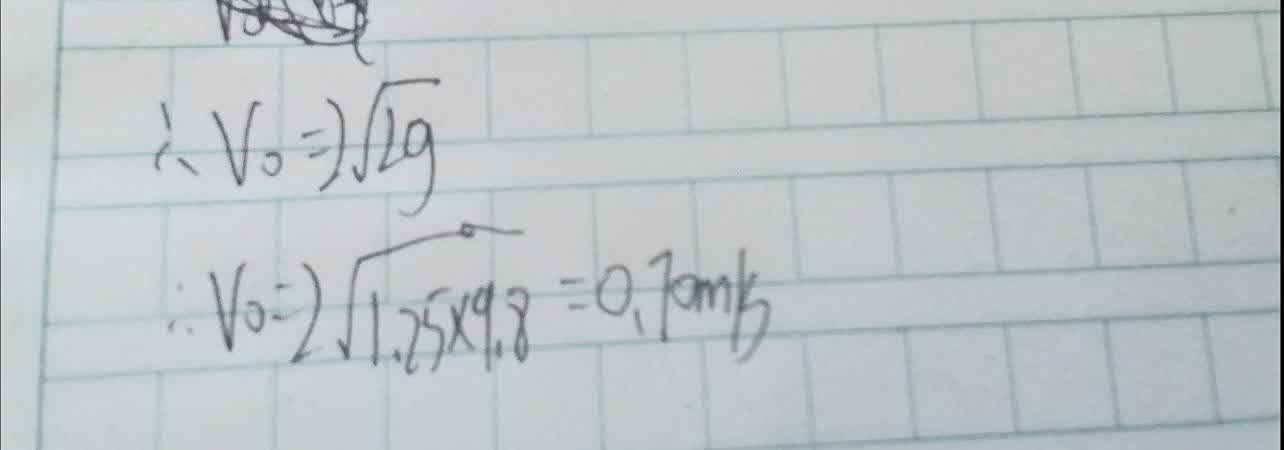 ∴ V₀=2√Lg
∴ V₀=2√1.25×9.8 =0.70m/s